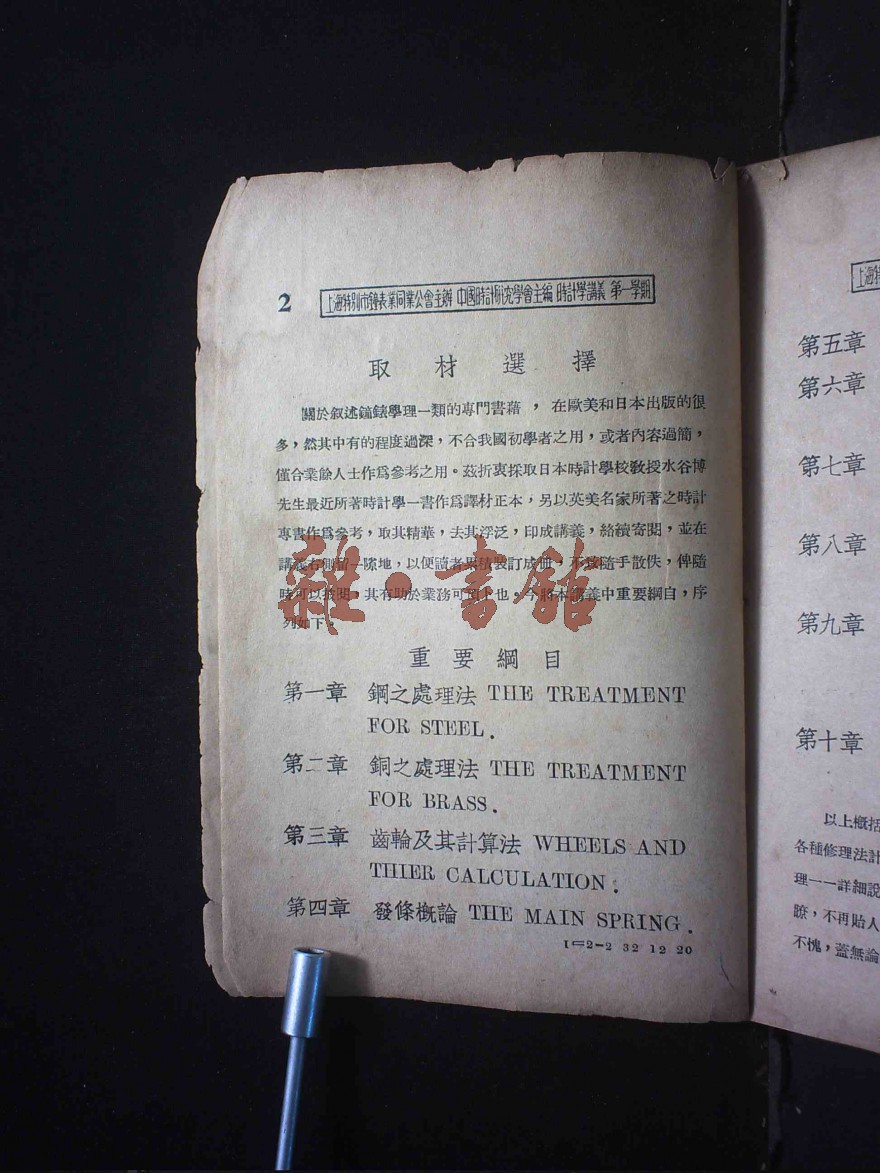 2 上海特別市鐘表業同業公會主辦 中國時計研究學會主編 時計學講義 第一學期
取材選擇
關於叙述鐘錶學理一類的專門書藉，在歐美和日本出版的很
多，然其中有的程度過深，不合我國初學者之用，或者內容過簡，
僅合業餘人士作爲參考之用。茲折衷採取日本時計學校敎授水谷博
先生最近所著時計學一書作爲譯材正本，另以英美名家所著之時計
專書作爲參考，取其精華，去其浮泛，印成講義，絡續寄閱，並在
講義右側留一隙地，以便讀者累積裝訂成冊，不致隨手散佚，俾隨
時可以披閱，其有助於業務可預卜也。今將本講義中重要綱自，序
列如下。
雜·書館
重要綱目
第一章 鋼之處理法 THE TREATMENT
FOR STEEL.
第二章 銅之處理法 THE TREATMENT
FOR BRASS.
第三章 齒輪及其計算法 WHEELS AND
THIER CALCULATION.
第四章 發條槪論 THE MAIN SPRING.
1=2-2 32 12 20
上海特
第五章
第六章
第七章
第八章
第九章
第十章
以上槪括
各種修理法計
理一一詳細說
瞭，不再貽人
不愧，蓋無論